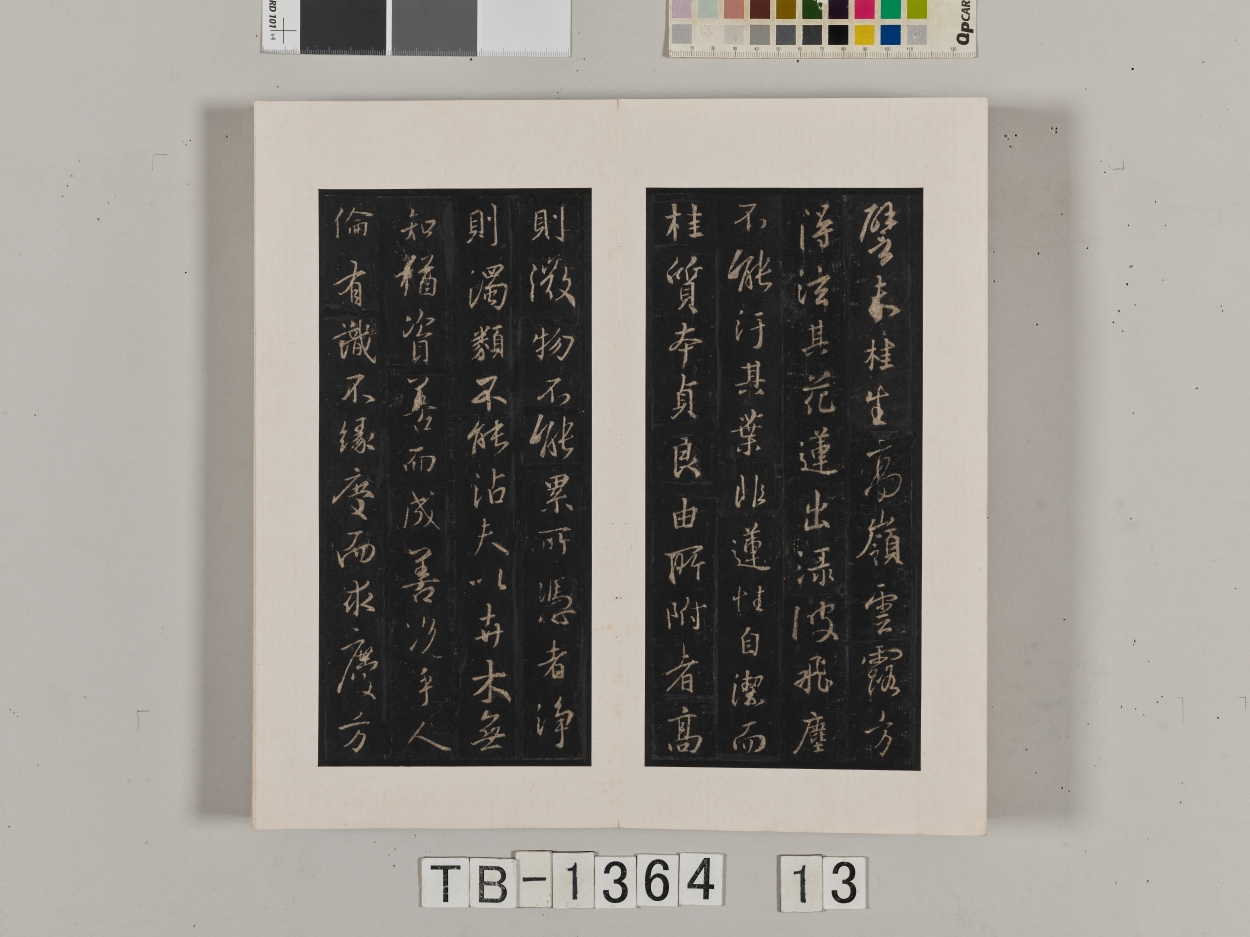 譬夫桂生高嶺雲露方
得泫其花蓮出淥波飛塵
不能汙其葉非蓮性自潔而
桂質本貞良由所附者高
則微物不能累所憑者淨
則濁類不能沾夫以卉木無
知猶資善而成善況乎人
倫有識不緣慶而求慶方
TB-1364 13
RD 101 v4
QPCAR